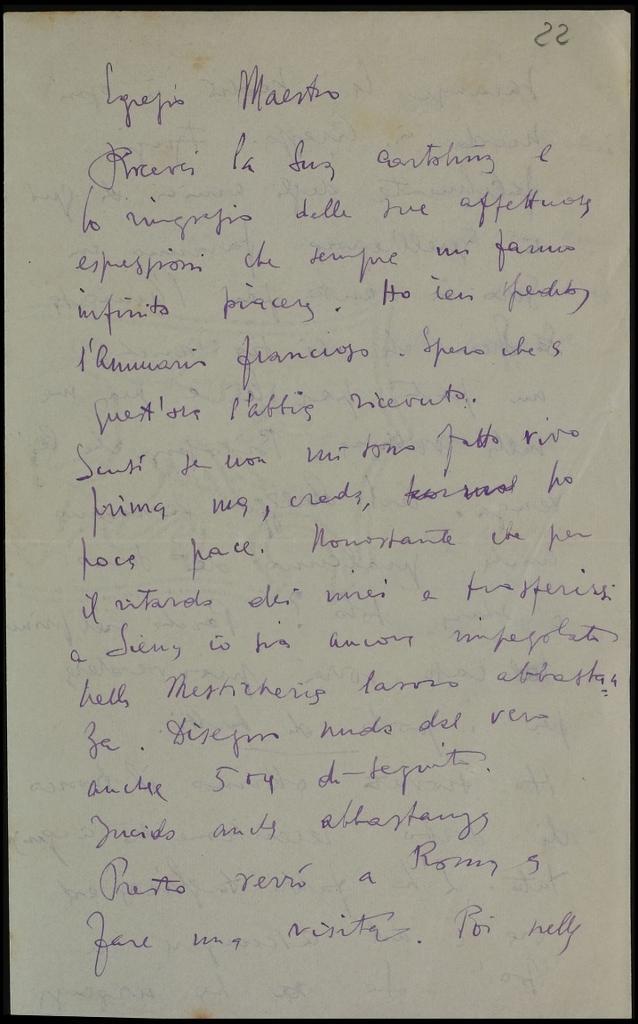 22
Egregio Maestro
Ricevei la Sua cartolina e
La ringrazio delle sue affettuose
espressioni che sempre mi fanno
infinito piacere. Ho ieri spedito
l'Annuario francioso. Spero che a
quest'ora l'abbia ricevuto.
Scusi se non mi sono fatto vivo
prima ma, creda, ho
poca pace. Nonostante che per
il ritardo dei miei a trasferirsi
a Siena io sia ancora impegolato
nella Mesticheria lavoro abbastan
za. Disegno nudo dal vero
anche 5 ore di seguito.
Incido anche abbastanza
Presto verrò a Roma a
fare una visita. Poi nella